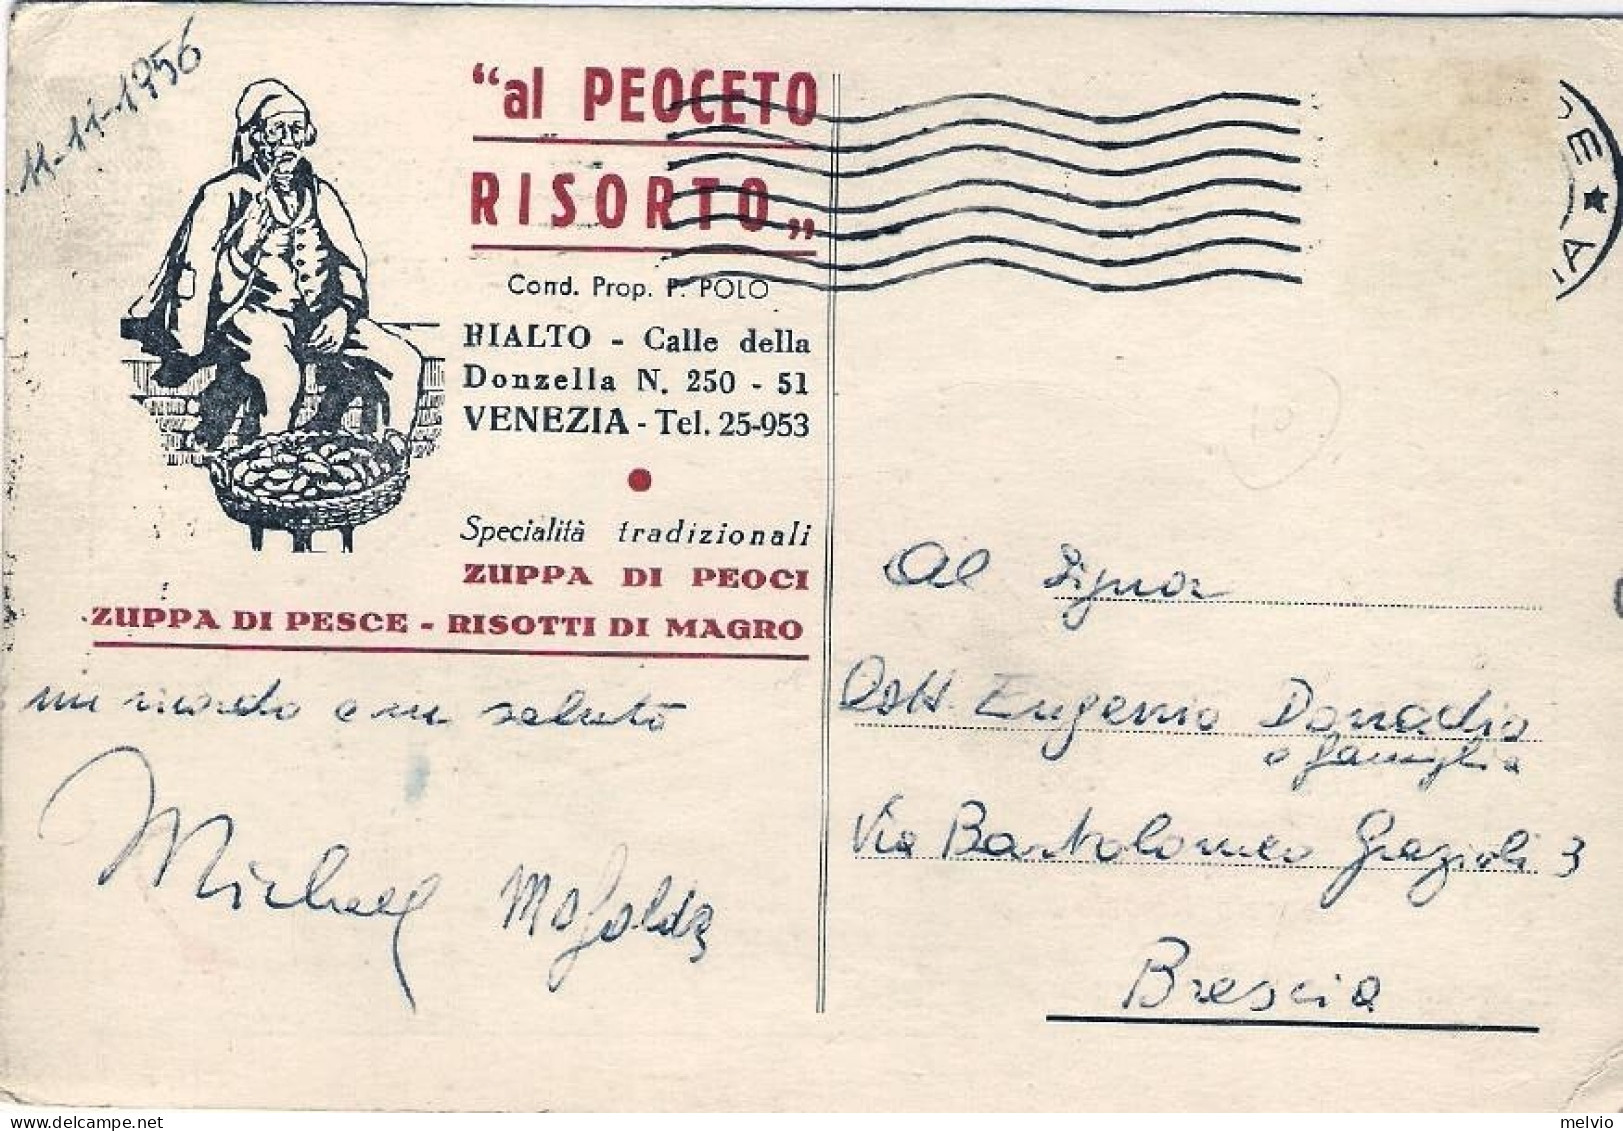 11-11-1956
“al PEOCETO
RISORTO„
Cond. Prop. P. POLO
RIALTO - Calle della
Donzella N. 250 - 51
VENEZIA - Tel. 25-953
Specialità tradizionali
ZUPPA DI PEOCI
ZUPPA DI PESCE - RISOTTI DI MAGRO
un ricordo e un saluto
Michael
Al Signor
Dott. Eugenio Donadio
e famiglia
Via Bartolomeo Grazioli 3
Brescia
melvio